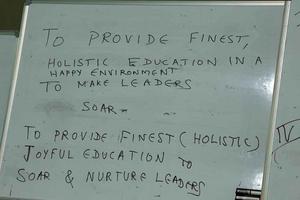 TO PROVIDE FINEST,
HOLISTIC EDUCATION IN A
HAPPY ENVIRONMENT
TO MAKE LEADERS
SOAR -
TO PROVIDE FINEST (HOLISTIC)
JOYFUL EDUCATION TO
SOAR & NURTURE LEADERS